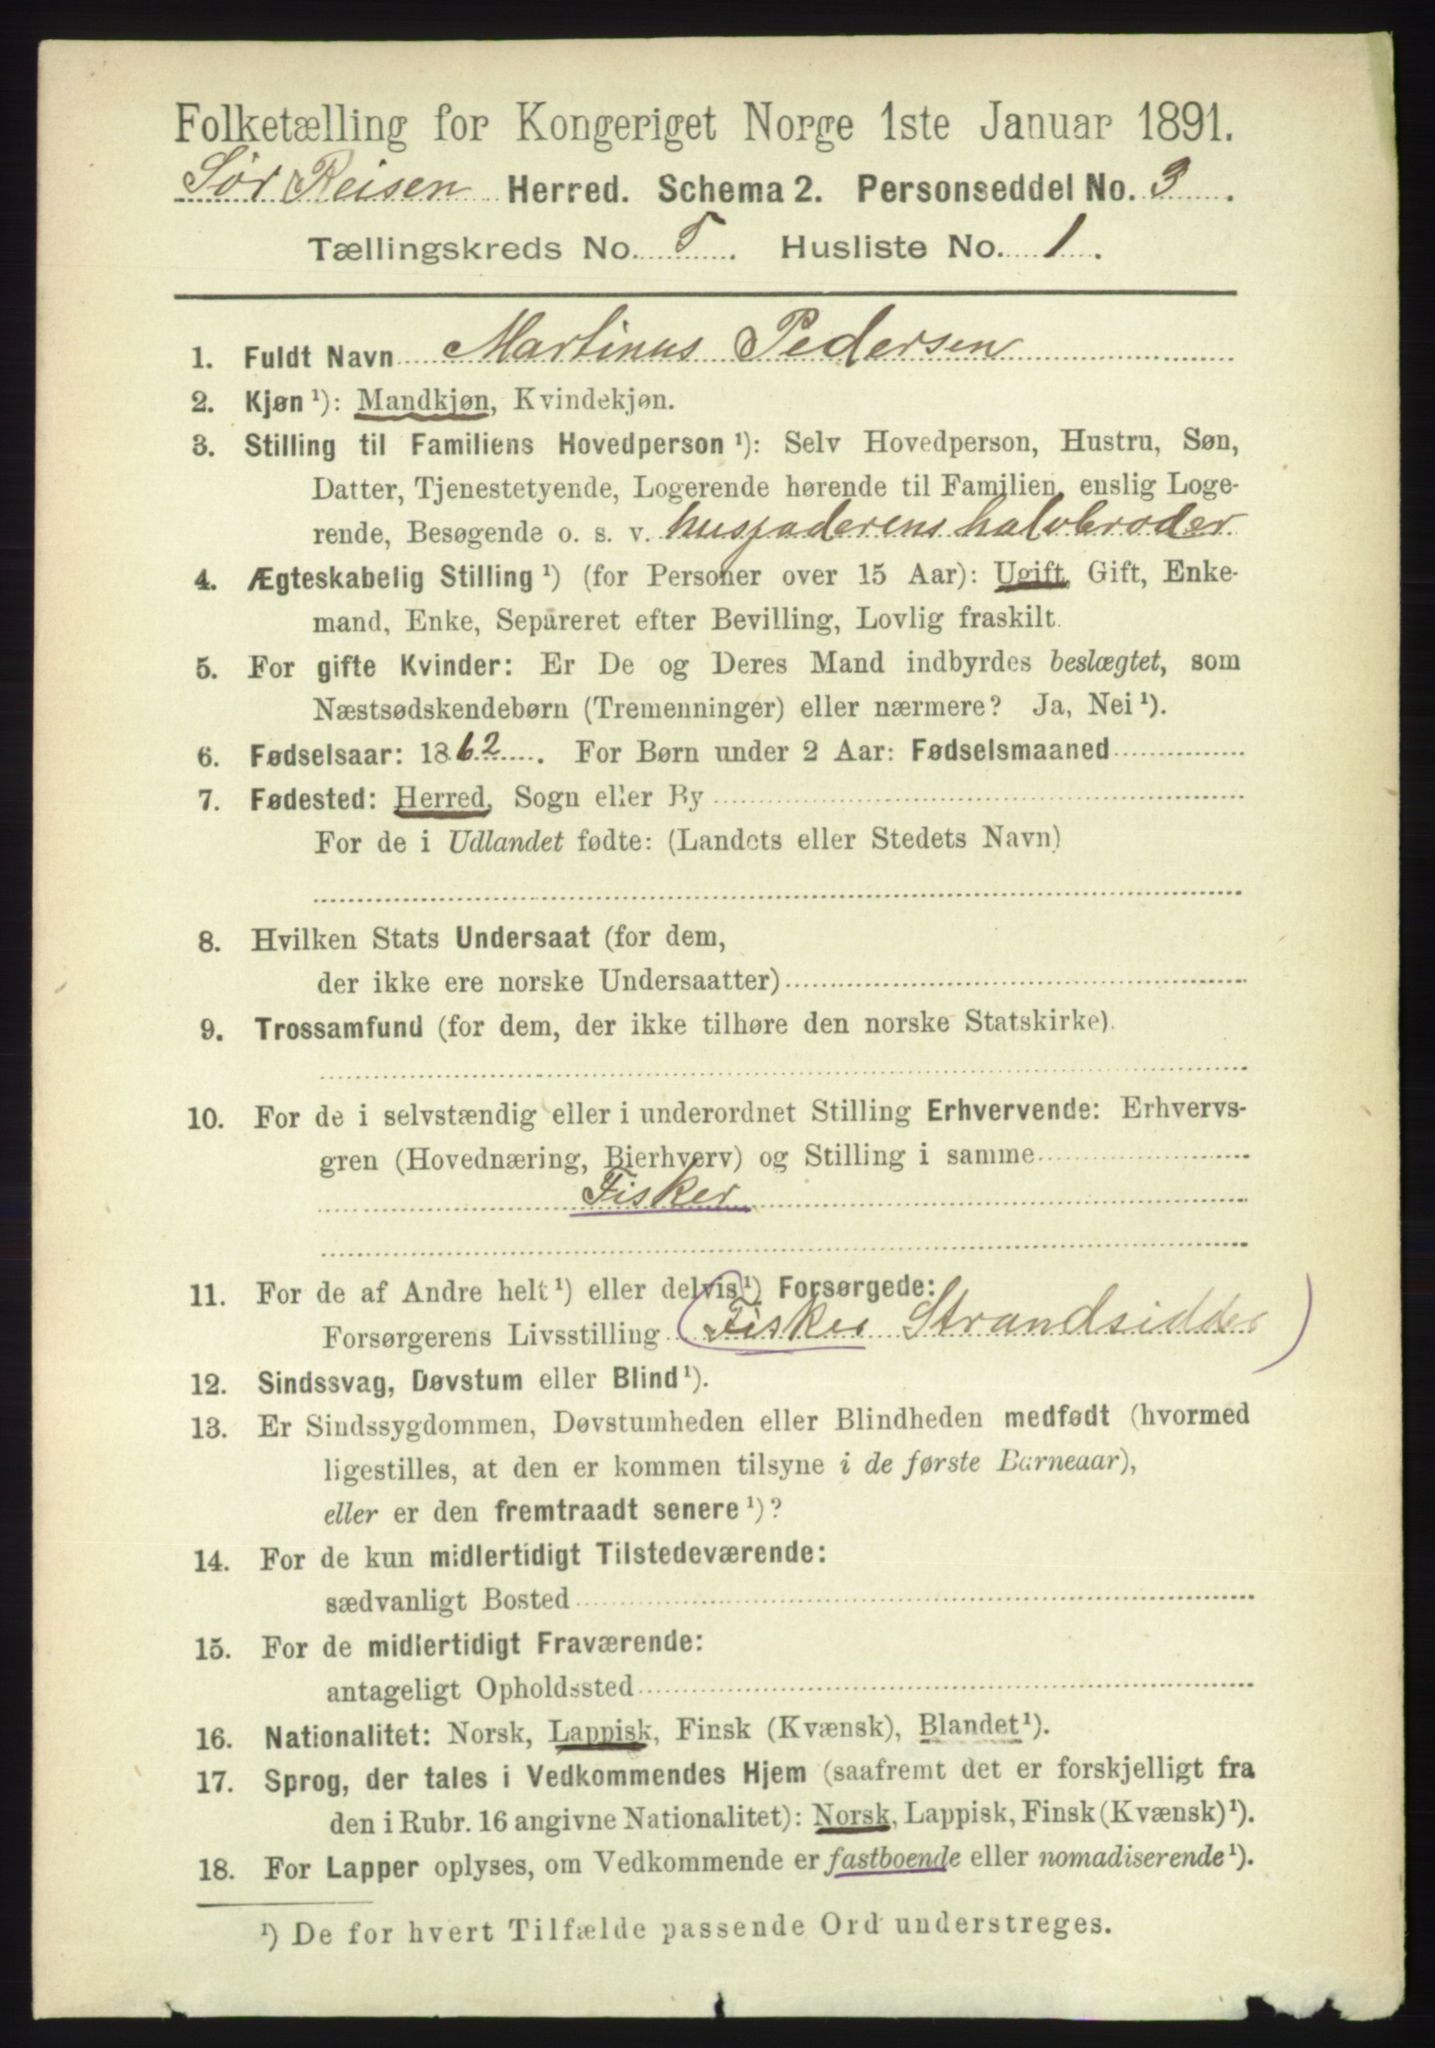 Folketælling for Kongeriget Norge 1ste Januar 1891.
Sør Reisen Herred. Schema 2. Personseddel No. 3.
Tællingskreds No. 5. Husliste No. 1.
1. Fuldt Navn Martinus Pedersen
2. Kjøn ¹): Mandkjøn, Kvindekjøn.
3. Stilling til Familiens Hovedperson ¹): Selv Hovedperson, Hustru, Søn,
Datter, Tjenestetyende, Logerende hørende til Familien, enslig Loge-
rende, Besøgende o. s. v. husfaderens halvbroder
4. Ægteskabelig Stilling ¹) (for Personer over 15 Aar): Ugift, Gift, Enke-
mand, Enke, Separeret efter Bevilling, Lovlig fraskilt.
5. For gifte Kvinder: Er De og Deres Mand indbyrdes beslægtet, som
Næstsødskendebørn (Tremenninger) eller nærmere? Ja, Nei ¹).
6. Fødselsaar: 1862. For Børn under 2 Aar: Fødselsmaaned
7. Fødested: Herred, Sogn eller By
For de i Udlandet fødte: (Landets eller Stedets Navn)
8. Hvilken Stats Undersaat (for dem,
der ikke ere norske Undersaatter)
9. Trossamfund (for dem, der ikke tilhøre den norske Statskirke).
10. For de i selvstændig eller i underordnet Stilling Erhvervende: Erhvervs-
gren (Hovednæring, Bierhverv) og Stilling i samme
Fisker
11. For de af Andre helt ¹) eller delvis ¹) Forsørgede:
Forsørgerens Livsstilling (Fisker Strandsidder)
12. Sindssvag, Døvstum eller Blind ¹).
13. Er Sindssygdommen, Døvstumheden eller Blindheden medfødt (hvormed
ligestilles, at den er kommen tilsyne i de første Barneaar),
eller er den fremtraadt senere ¹)?
14. For de kun midlertidigt Tilstedeværende:
sædvanligt Bosted
15. For de midlertidigt Fraværende:
antageligt Opholdssted
16. Nationalitet: Norsk, Lappisk, Finsk (Kvænsk), Blandet ¹).
17. Sprog, der tales i Vedkommendes Hjem (saafremt det er forskjelligt fra
den i Rubr. 16 angivne Nationalitet): Norsk, Lappisk, Finsk (Kvænsk) ¹).
18. For Lapper oplyses, om Vedkommende er fastboende eller nomadiserende ¹).
¹) De for hvert Tilfælde passende Ord understreges.